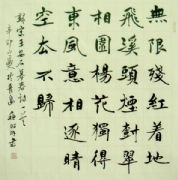 無限殘紅着地
飛溪頭烟樹翠
相圍楊花獨得
東風意相逐晴
空去不歸
宋王安石暮春詩一首
辛卯之夏於青島
書